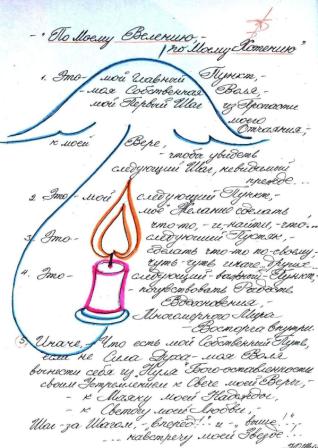 -"По Моему Велению,-
по Моему Хотению"
1. Это - мой Главный Пункт,-
-моя Собственная Воля,-
мой Первый Шаг из Пропасти
моего
Отчаяния,-
к моей Вере,-
-чтобы увидеть
следующий Шаг, невидимый
прежде...
2. Это - мой следующий Пункт,-
-моё Желание сделать
что-то, - и найти, - что...
3. Это - следующий Пустяк,-
-сделать что-то по-своему,-
чуть-чуть иначе, лучше...
4. Это - следующий важный Пункт:
-почувствовать Радость
Вдохновения,-
Многомерного Мира
-Восторга внутри.
5. Иначе,- Что есть мой Собственный Путь,
если не Сила Духа - моя Воля
вынести себя из Нуля Бого-оставленности
своим Устремлением к Свече моей Веры,-
-к Маяку моей Надежды,
-к Светочу моей Любви,
Шаг за Шагом, -вперёд!- и -выше!,
навстречу моей Звезде...